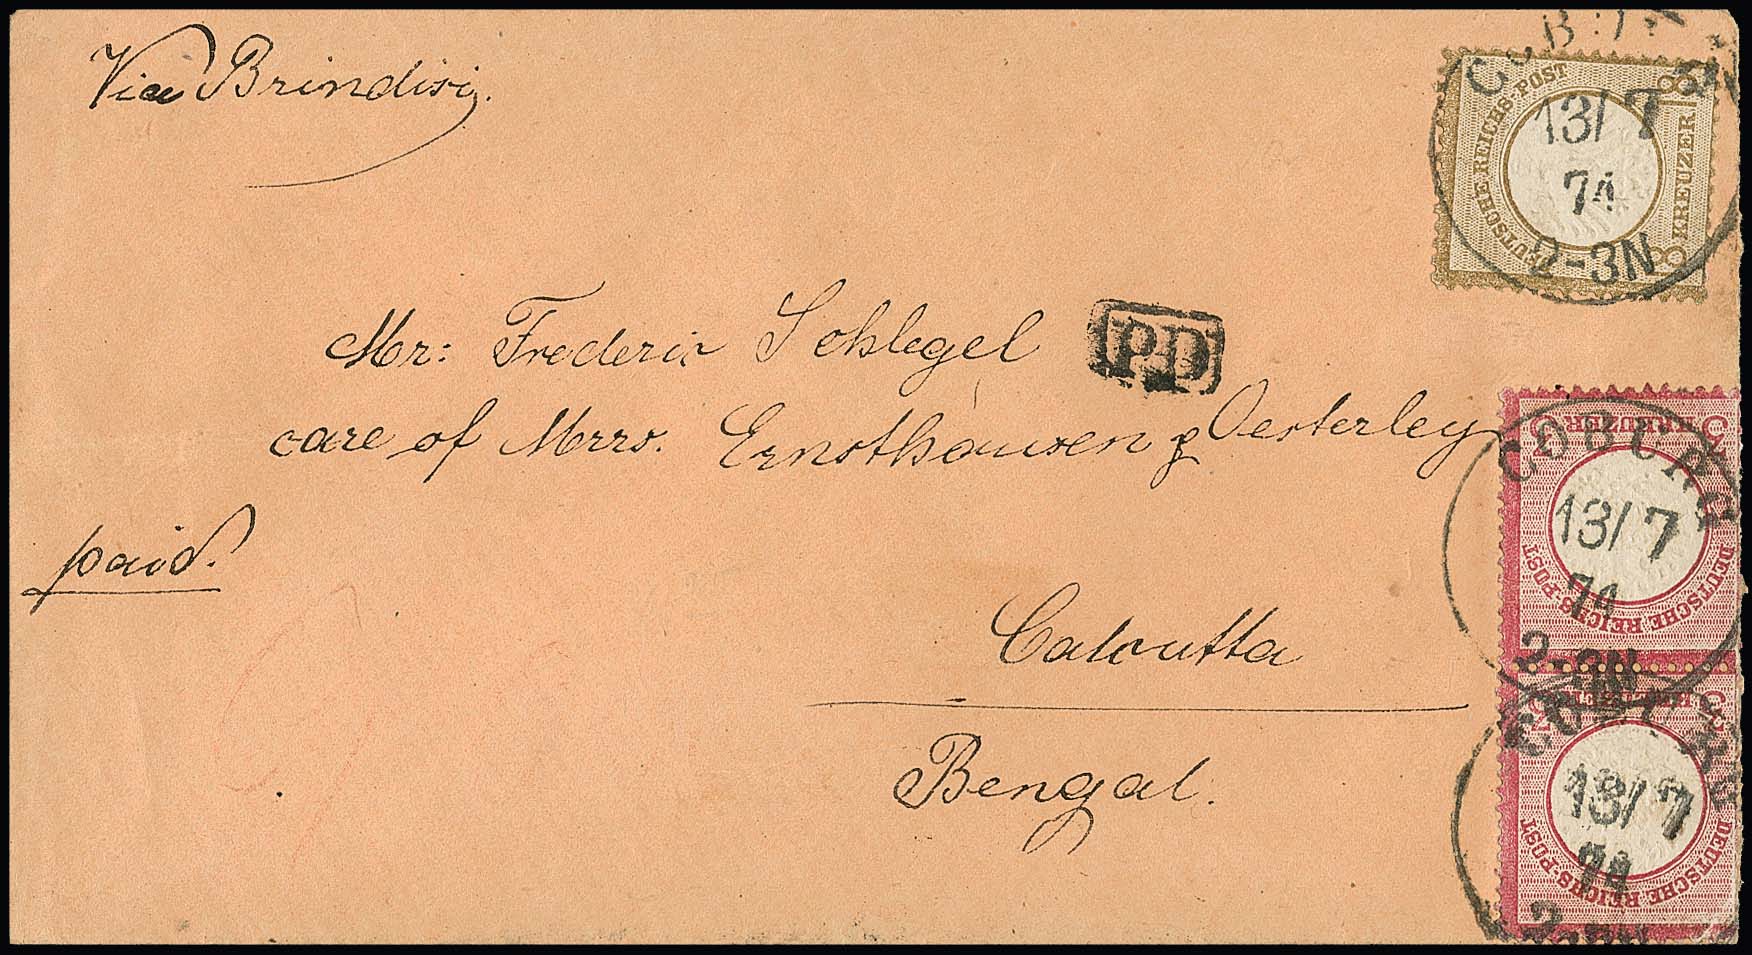 Via Brindisi.
Mr: Frederic Schlegel
care of Mrrs. Ernsthausen & Oesterley
paid.
Calcutta
Bengal.
P.D
COBURG
13/7
74
2-3N
DEUTSCHE REICHS-POST
8 KREUZER 8
COBURG
13/7
74
2-3N
3 KREUZER 3
DEUTSCHE REICHS-POST
COBURG
13/7
74
3 KREUZER 3
DEUTSCHE REICHS-POST